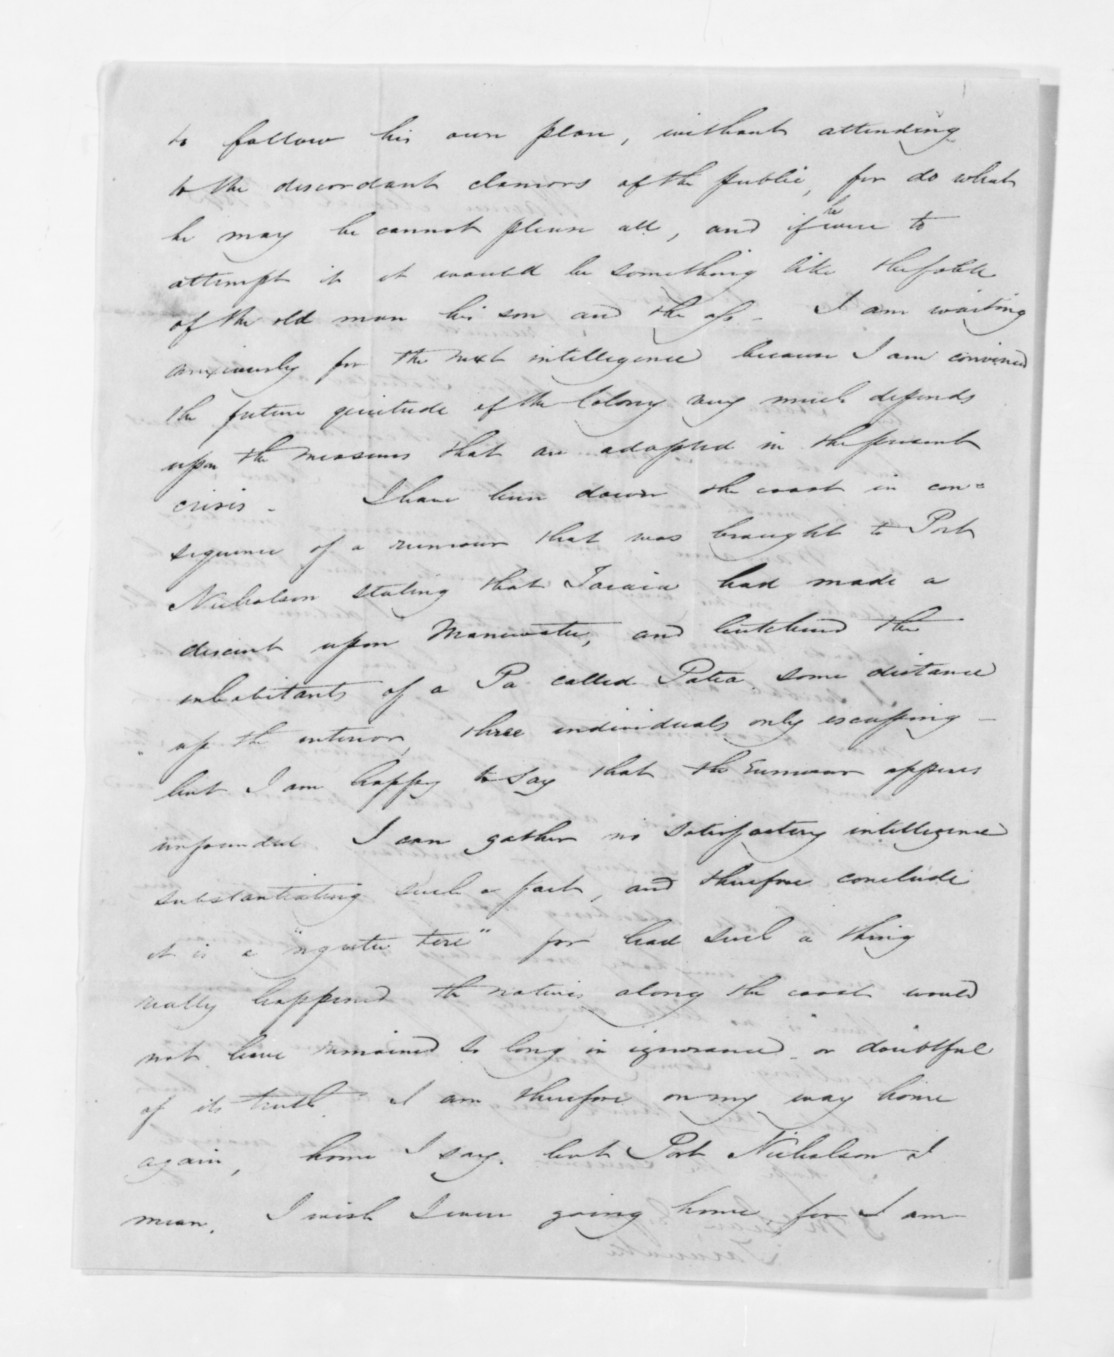 to follow his own plan, without attending
to the discordant clamors of the public, for do what
he may he cannot please all, and if he were to
attempt it it would be something like the fable
of the old man his son and the ass - I am waiting
anxiously for the next intelligence because I am convinced
the future quietude of the Colony very much depends
upon the measures that are adopted in the present
crisis - I have been down the coast in con=
sequence of a rumour that was brought to Port
Nicholson stating that had made a
descent upon Manewatu, and butchered the
inhabitants of a Pa called Patea some distance
up the interior, three individuals only escaping -
but I am happy to say that the rumour appears
unfounded I can gather no satisfactory intelligence
substantiating such a fact, and therefore conclude
it is a "ngutu tere" for had such a thing
really happened the natives along the coast would
not have remained so long in ignorance or doubtful
of its truth. I am therefore on my way home
again, home I say. but Port Nicholson I
mean. I wish I were going home for I am